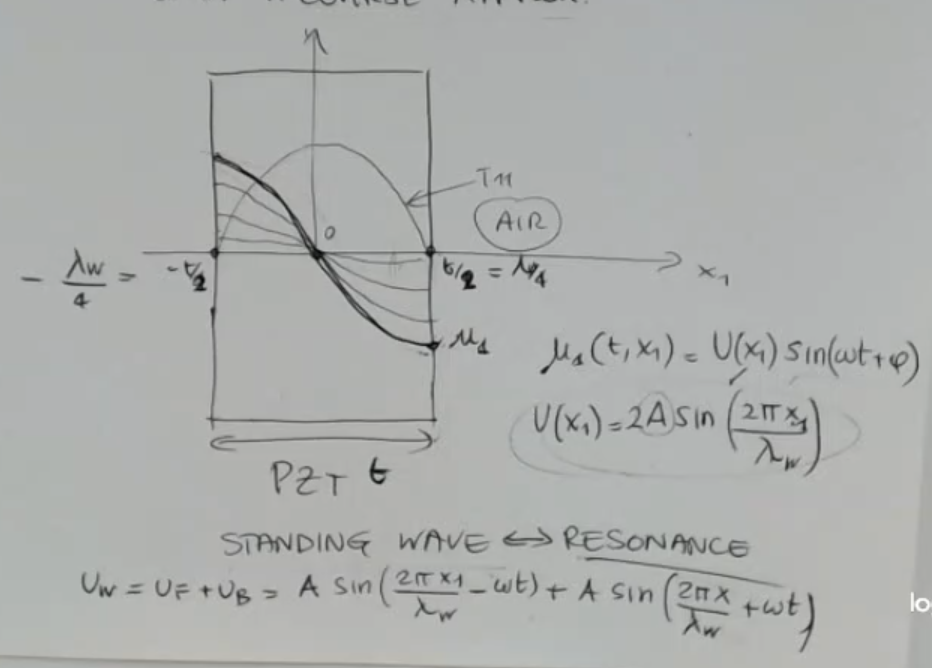 T11
AIR
0
- λw/4 = -t/2
t/2 = λw/4
x1
u1
u1(t,x1) = U(x1) sin(ωt+φ)
U(x1) = 2A sin (2π x1/λw)
PZT t
STANDING WAVE ↔ RESONANCE
UW = UF + UB = A sin(2π x1/λw - ωt) + A sin(2π x/λw + ωt)